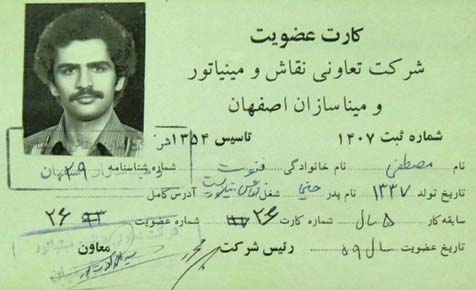 کارت عضویت
شرکت تعاونی نقاش و مینیاتور
و میناسازان اصفهان
شماره ثبت ۱۴۰۷ تاسیس ۱۳۵۴
نام مصطفی نام خانوادگی فتوت شماره شناسنامه ۲۹
تاریخ تولد ۱۳۳۷ نام پدر شغل آدرس کامل
سابقه کار ۵ سال شماره کارت ۲۶ شماره عضویت ۲۶
تاریخ عضویت سال ۵۹ رئیس شرکت معاون